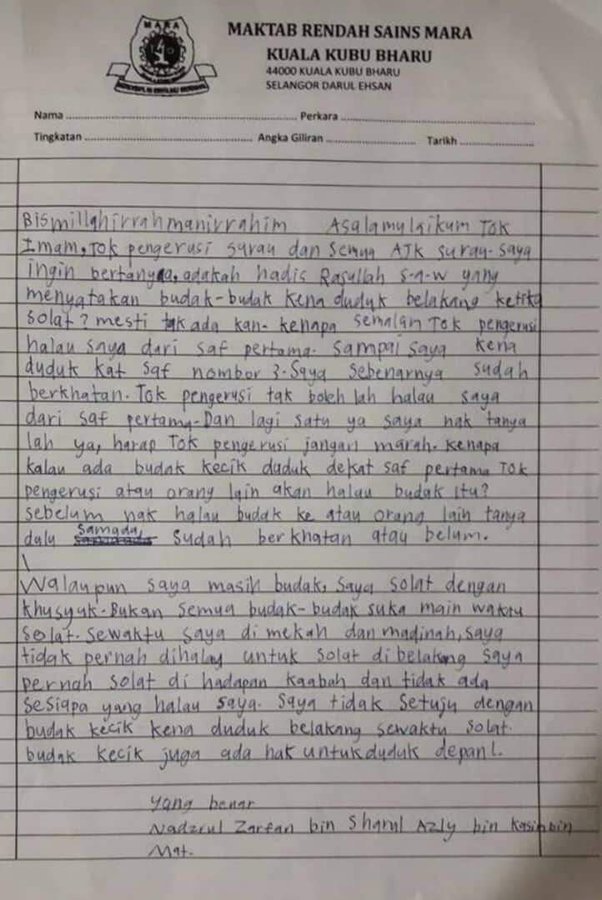 MARA
MAKTAB RENDAH SAINS MARA
KUALA KUBU BHARU
44000 KUALA KUBU BHARU
SELANGOR DARUL EHSAN
Nama ........ Perkara ........
Tingkatan ........ Angka Giliran ........ Tarikh ........
Bismillahirrahmanirrahim Asalamulaikum Tok
Imam, Tok pengerusi surau dan semua AJK surau. saya
ingin bertanya, adakah hadis Rasullah s-a-w yang
menyatakan budak-budak kena duduk belakang ketika
solat? mesti tak ada kan. kenapa semalam Tok pengerusi
halau saya dari saf pertama. sampai saya kena
duduk kat saf nombor 3. Saya sebenarnya sudah
berkhatan. Tok pengerusi tak boleh lah halau saya
dari saf pertama. Dan lagi satu ya saya nak tanya
lah ya, harap Tok pengerusi jangan marah. kenapa
kalau ada budak kecik duduk dekat saf pertama Tok
pengerusi atau orang lain akan halau budak itu?
sebelum nak halau budak ke atau orang lain tanya
dulu samada, sudah berkhatan atau belum.
Walaupun saya masih budak, saya solat dengan
khusyuk. Bukan semua budak-budak suka main waktu
solat. sewaktu saya di mekah dan madinah, saya
tidak pernah dihalau untuk solat di belakang saya
pernah solat di hadapan kaabah dan tidak ada
sesiapa yang halau saya. saya tidak setuju dengan
budak kecik kena duduk belakang sewaktu solat.
budak kecik juga ada hak untuk duduk depan!.
yang benar
Nadzrul Zarfan bin Sharul Azly bin Kasim bin
Mat.